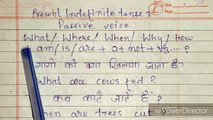 Present Indefinite tense:
Passive voice
What/Where/When/Why/How
am/is/are + O + not + V3 ....?
गायों को क्या खिलाया जाता है?
What are cows fed?
कब काटे जाते हैं?
When are trees cut
PowerDirector